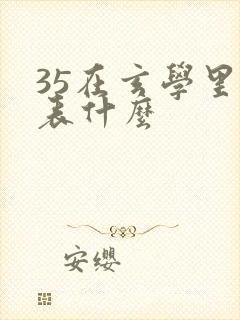 35在玄學里
表什麼
安纓